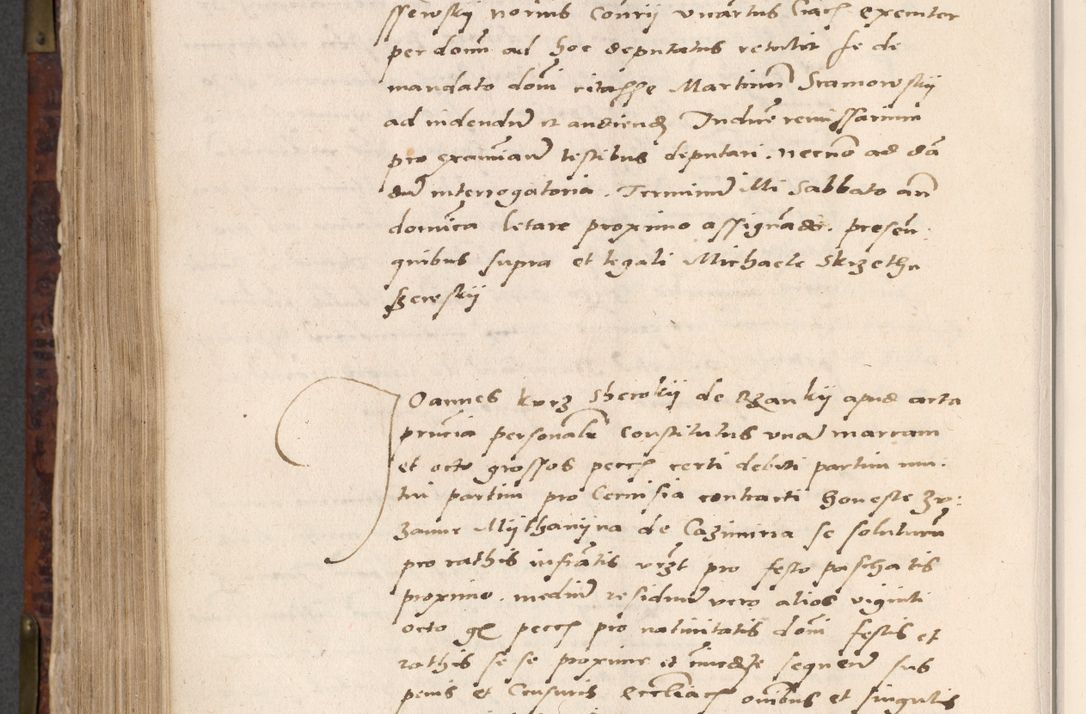 sserosky norius Conrii vnartus Cracē exemter
per dom̄ ad hoc deputatus retulit se de
mandato dom̄i citasse Martinū Sramowsky
ad videndū et audiendū Iudicē remissarium
pro examinan̄ testibus deputari. necno ad dā
dū interrogatoria. Terminū illi Sabbato an̄
dominica letare proximo assignādo. presen̄.
quibus supra et legali Michaele Skrzethu
sseresky
IOannes kurz Sherokij de Rzankij apud acta
pn̄cia personalr̄ Constitutus vnā marcam
et octo grossos pecc̄ certi debiti partim mu:
tui partim pro Cervisia contracti Honeste Zv:
zanne Mijthanijna de Cazimiria se soluturū
pro rathis infrātis vrz̄t pro festo paschatis
proximo. mediū residuū vero alios viginti
octo gr̄ pecc̄ pro nativitatis dom̄i festis et
rathis se se proxime et īmediate sequen̄ sub
penis et Censuris eccl̄iacē om̄ibus et singulis